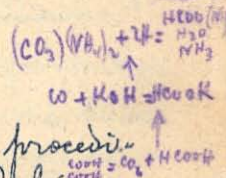 (CO3)(NH4)2 + 2H = HCOO(N
H2O
NH3
CO + KOH = HCOOK
procedi-
COOH = CO2 + HCOOH
COOH